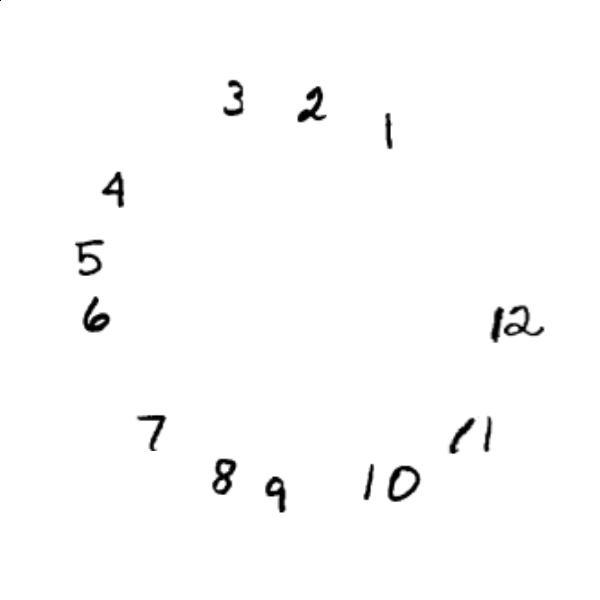 3 2 1
4
5
6
12
7
11
8 9 10